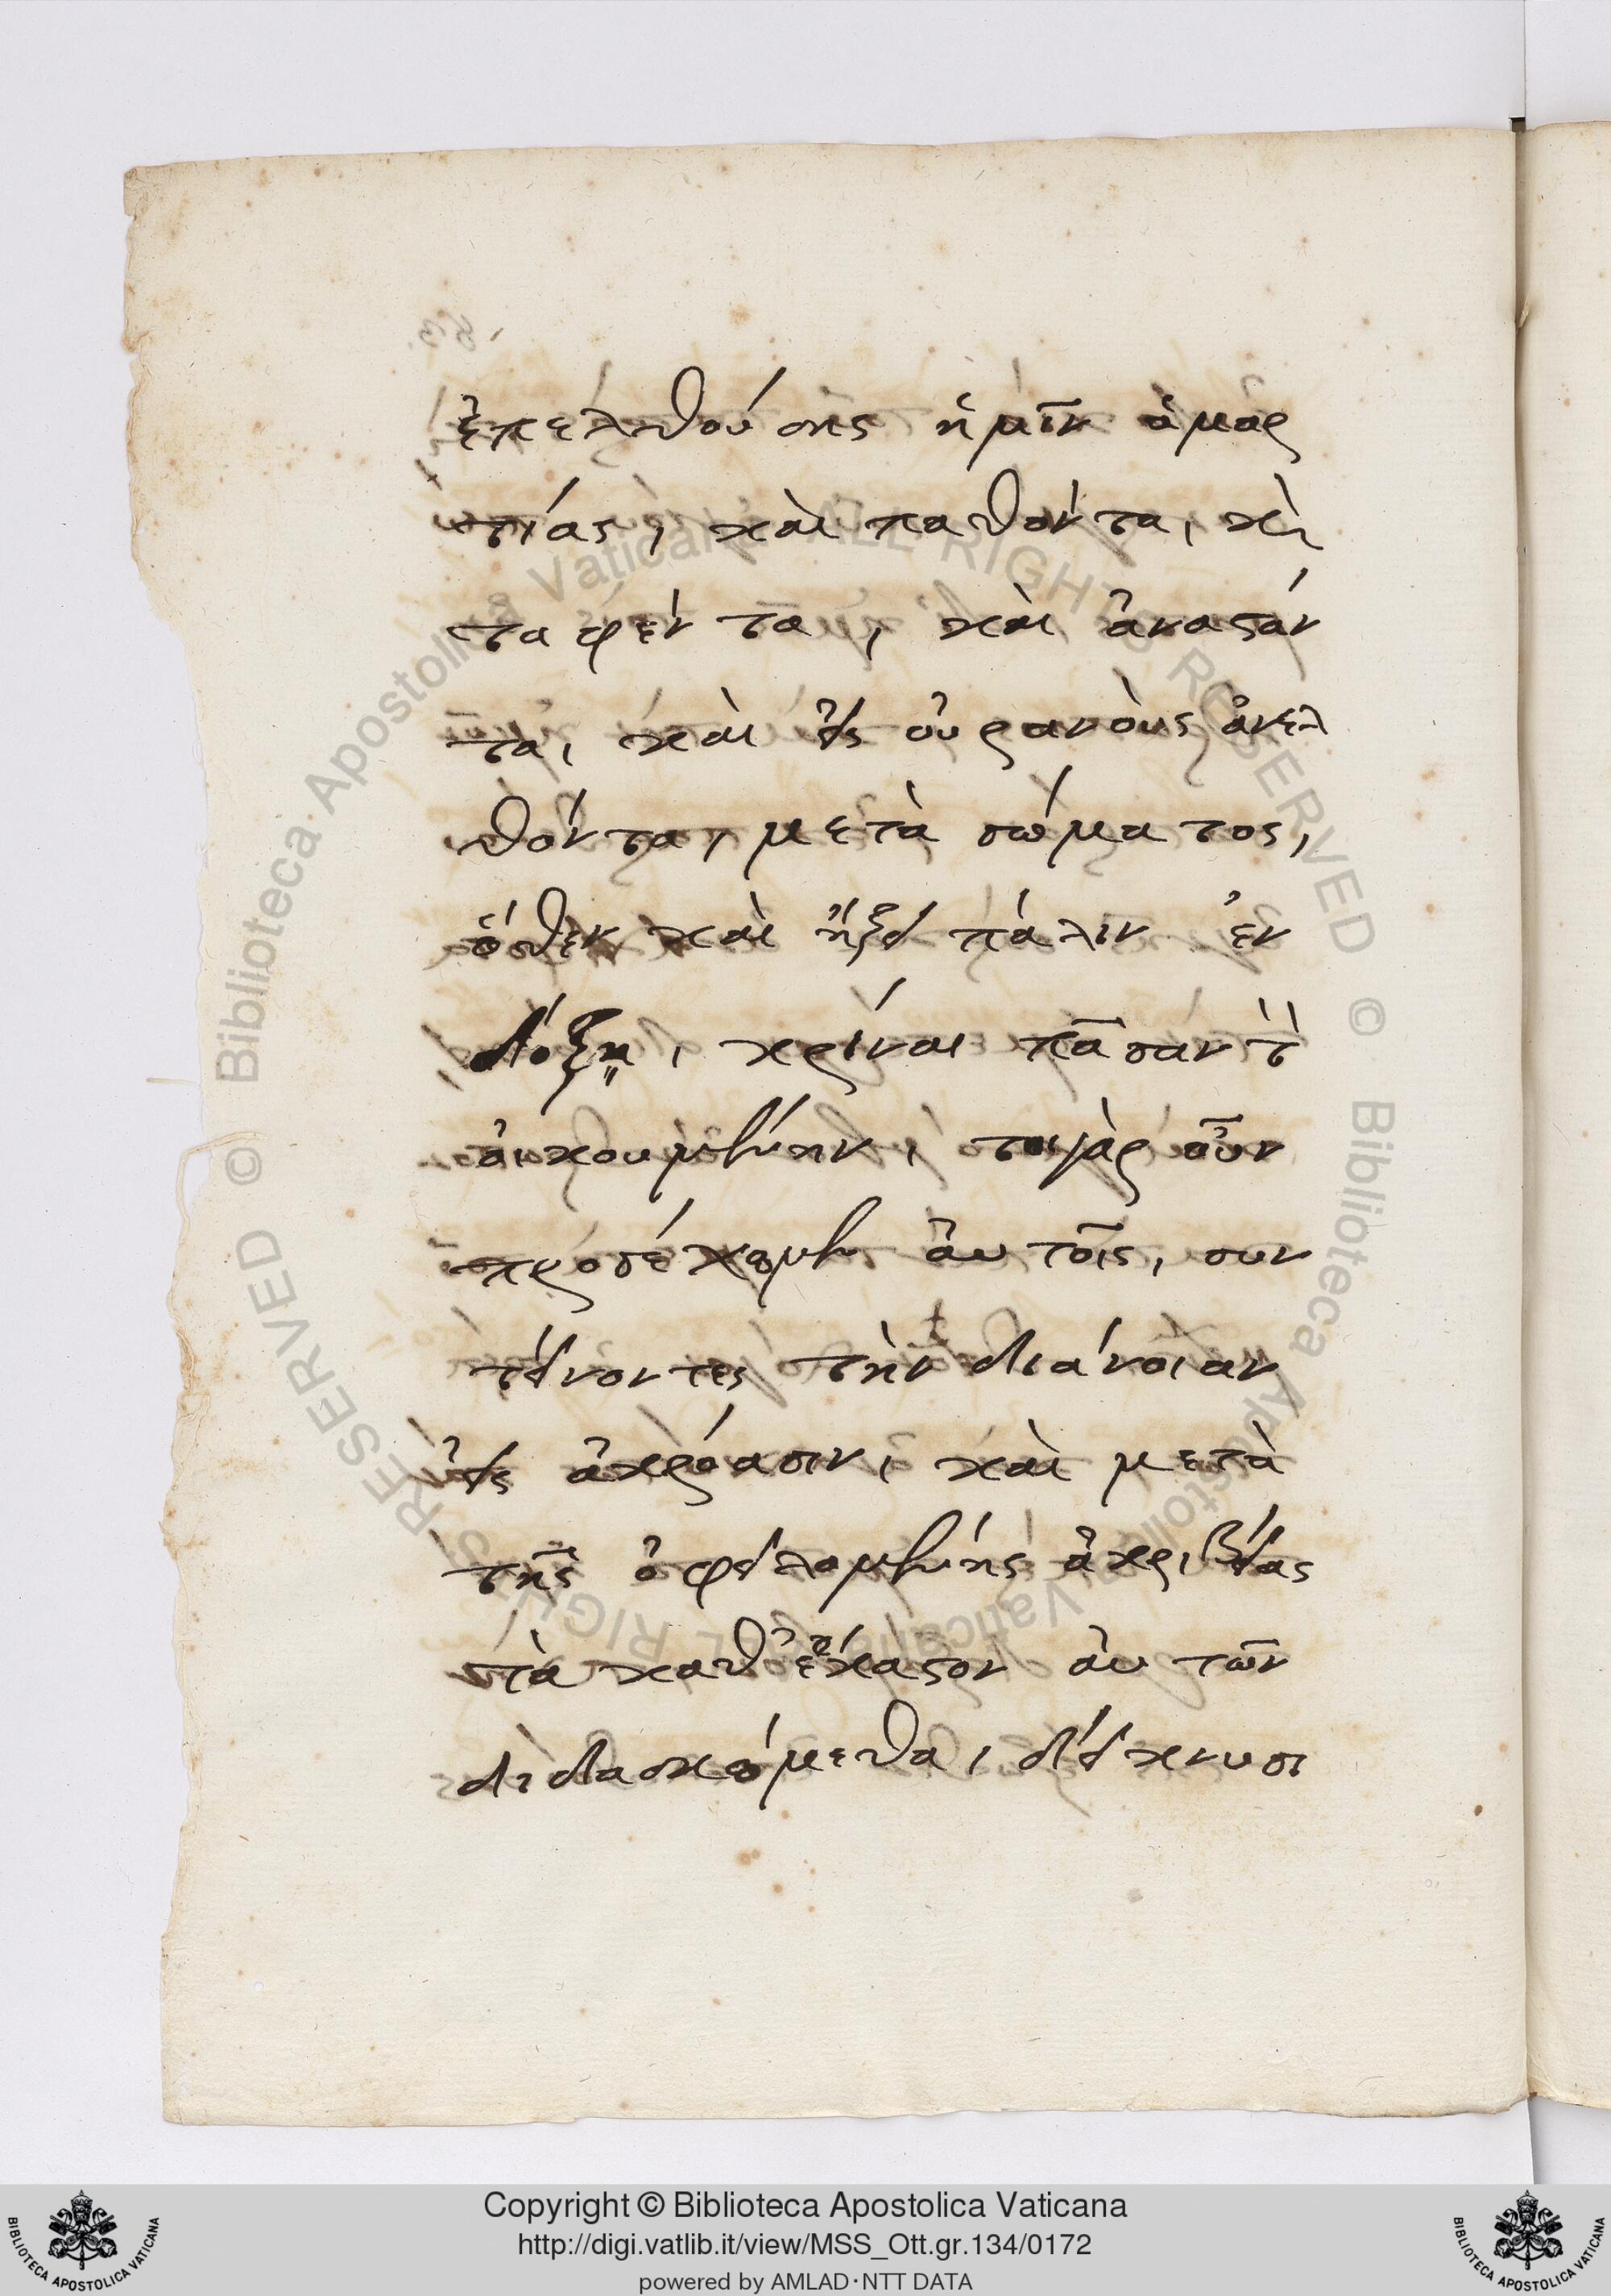 ἐπελθούσης ἡμῖν ἁμαρ
τίας, καὶ παθόντα, κὶ
ταφέντα, καὶ ἀναστάν
τα, καὶ εἰς οὐρανοὺς ἀνελ
θόντα, μετὰ σώματος,
ὅθεν καὶ ἥξει πάλιν ἐν
δόξῃ, κρίναι πᾶσαν τ̀
οἰκουμένην, τοιγὰρ οὖν
προσέχομεν αὐτοῖς, συν
τείνοντες τὴν διάνοιαν
εἰς ἀκρόασιν, καὶ μετὰ
τῆς ὀφειλομένης ἀκριβείας
τὰ καθ' ἕκαστον αὐτῶν
διδασκόμεθα, δείκνυσι
Copyright © Biblioteca Apostolica Vaticana
http://digi.vatlib.it/view/MSS_Ott.gr.134/0172
powered by AMLAD·NTT DATA
BIBLIOTECA APOSTOLICA VATICANA
BIBLIOTECA APOSTOLICA VATICANA
© Biblioteca Apostolica Vaticana ALL RIGHTS RESERVED
© Biblioteca Apostolica Vaticana ALL RIGHTS RESERVED